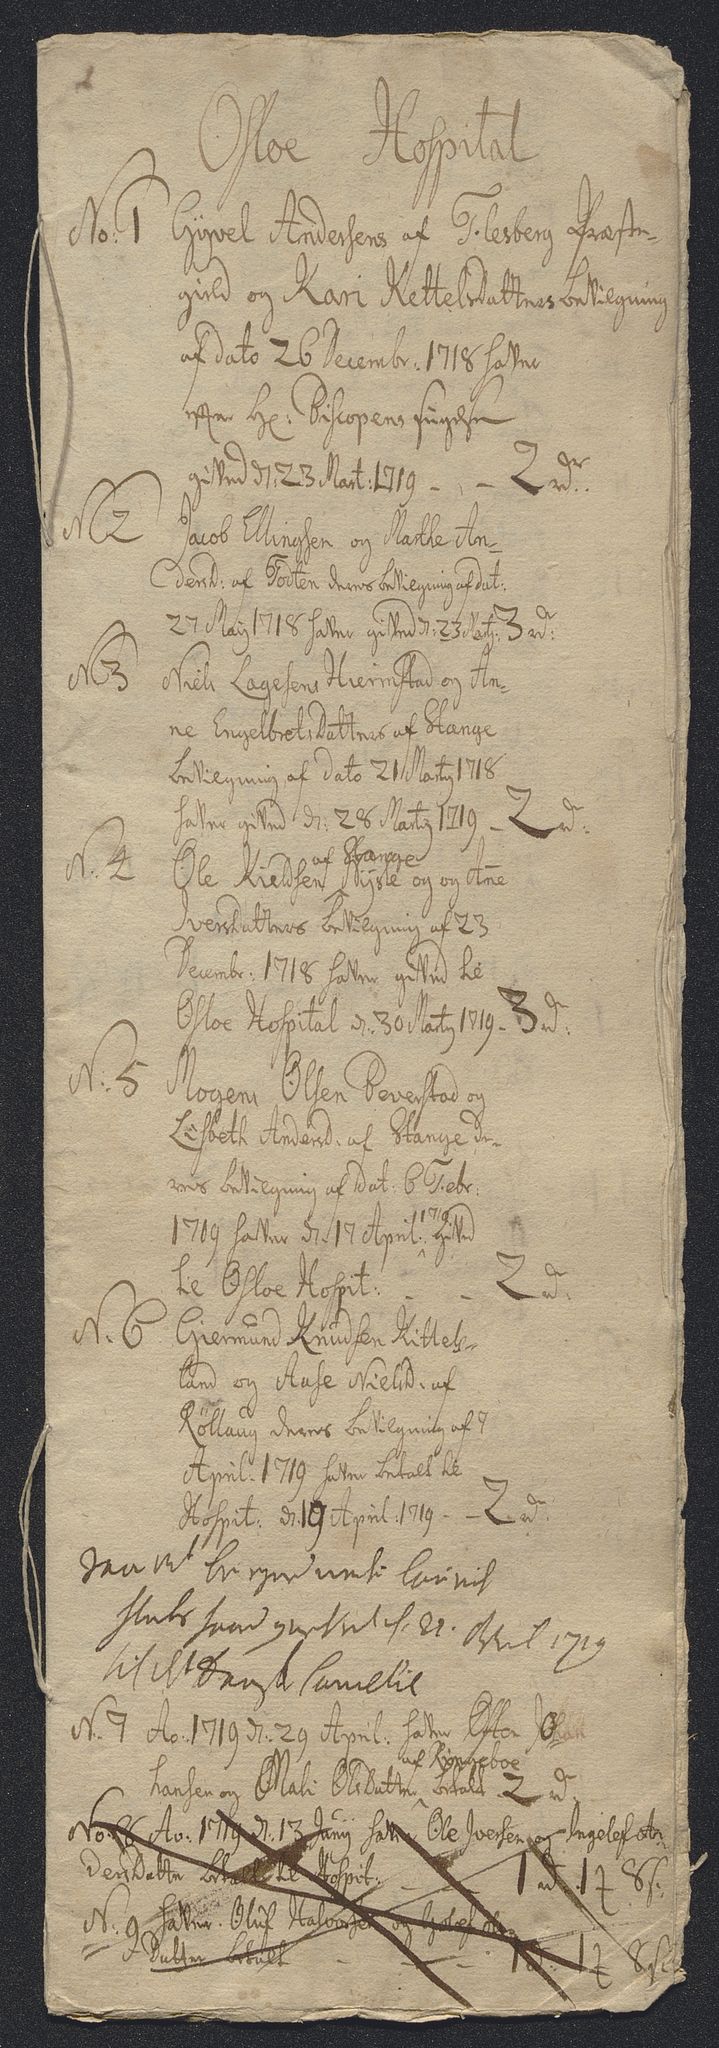 Osloe Hospital
No: 1 Gÿvel Andersens af Flesberg Præste-
gield og Kari Kettelsdatters bevilgning
af dato 26 Decembr: 1718 haver
efter Hr: Biscopens
gived d: 23 Mart: 1719 - - - 2 rdr:
N 2 Jacob Ellingsen og Marthe An-
dersd: af Todten deres bevilgning af dat:
27 Maÿ 1718 haver gived d: 23 Martÿ: 3 rd:
N 3 Niels Lagesens Hiermstad og An-
ne Engelbretsdatters af Stange
bevilgning af dato 21 Martÿ 1718
haver gived d: 28 Martÿ 1719 - 2 rd:
af Stange
N. 4 Ole Kieldsen og og Anne
Iversdatters bevilgning af 23
Decembr: 1718 haver gived te
Osloe Hospital d: 30 Martÿ 1719 - 3 rd:
N: 5 Mogens Olsen Beverstad og
Lisbeth Andersd: af Stange de-
res bevilgning af dat: 6 Febr:
1719 haver d: 17 April: 1719 gived
te Osloe Hospit: - - 2 rd:
N. 6 Giermund Knudsen Kittels-
land og Aase Nielsd: af
Röllaug deres bevilgning af 7
April: 1719 haver betalt te
Hospit: d: 19 April: 1719 - - 2 rd:
21. April 1719
N. 7 Ao: 1719 d: 29 April: haver
af Rÿnneboe
hansen og Mali Olsdatter betalt 2 rd:
No: 8 Ao: 1719 d: 13 Junÿ haver Ole Iversen og Ingelef An-
dersdatter betalt te Hospit: - - - 1 rd: 1 8 s:
N. 9 haver Oluf Halvorsen og
Datter betalt - - - 1 rd: 1 8 s: